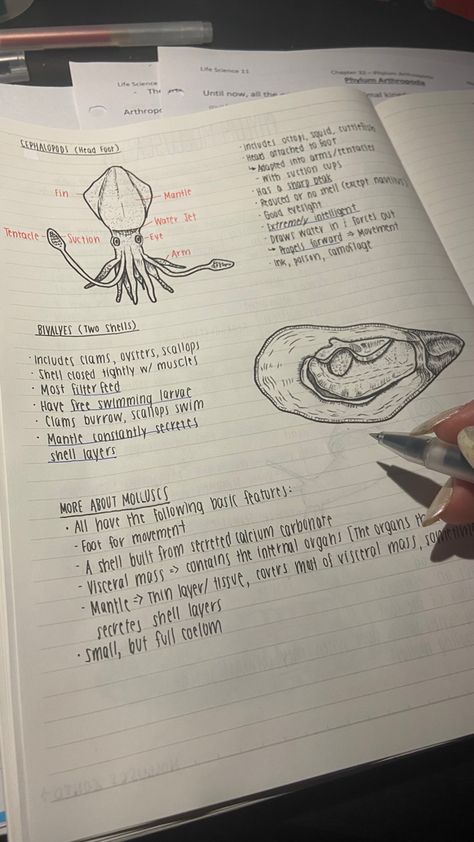 Life Science 11
Chapter 32 – Phylum Arthropoda
Phylum Arthropoda
Life Science
Until now, all the
Arthropo
CEPHALOPODS (Head Foot)
Fin
Mantle
Water Jet
Tentacle
Suction
Eye
Arm
· Includes octopi, squid, cuttlefish
· Head attached to foot
↳ Adapted into arms/tentacles
- With suction cups
· Has a sharp beak
· Reduced or no shell (except nautilus)
· Good eyesight
· Extremely intelligent
· Draws water in & forces out
↳ Propels forward => Movement
· Ink, poison, camoflage
BIVALVES (Two Shells)
· Includes clams, oysters, scallops
· Shell closed tightly w/ muscles
· Most filter feed
· Have free swimming larvae
· Clams burrow, scallops swim
· Mantle constantly secretes
shell layers
MORE ABOUT MOLLUSCS
· All have the following basic features:
- Foot for movement
- A shell built from secreted calcium carbonate
- Visceral mass => contains the internal organs [The organs th
- Mantle => Thin layer/tissue, covers most of visceral mass, sometimes
secretes shell layers
· small, but full coelom